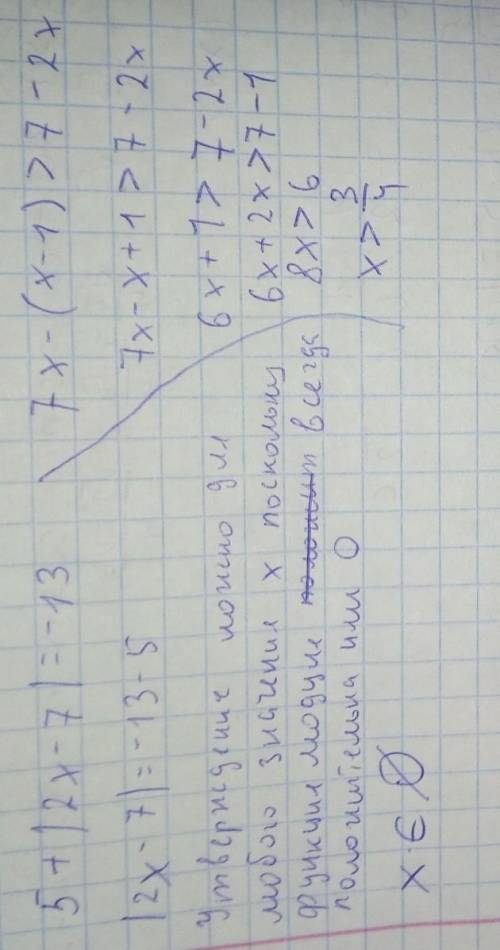 5 + |2x - 7| = -13
|2x - 7| = -13 - 5
утверждение ложно для
любого значения x поскольку
функция модуля положит всегда
положительна или 0
x ∈ ∅
7x - (x - 1) > 7 - 2x
7x - x + 1 > 7 - 2x
6x + 1 > 7 - 2x
6x + 2x > 7 - 1
8x > 6
x > 3/4